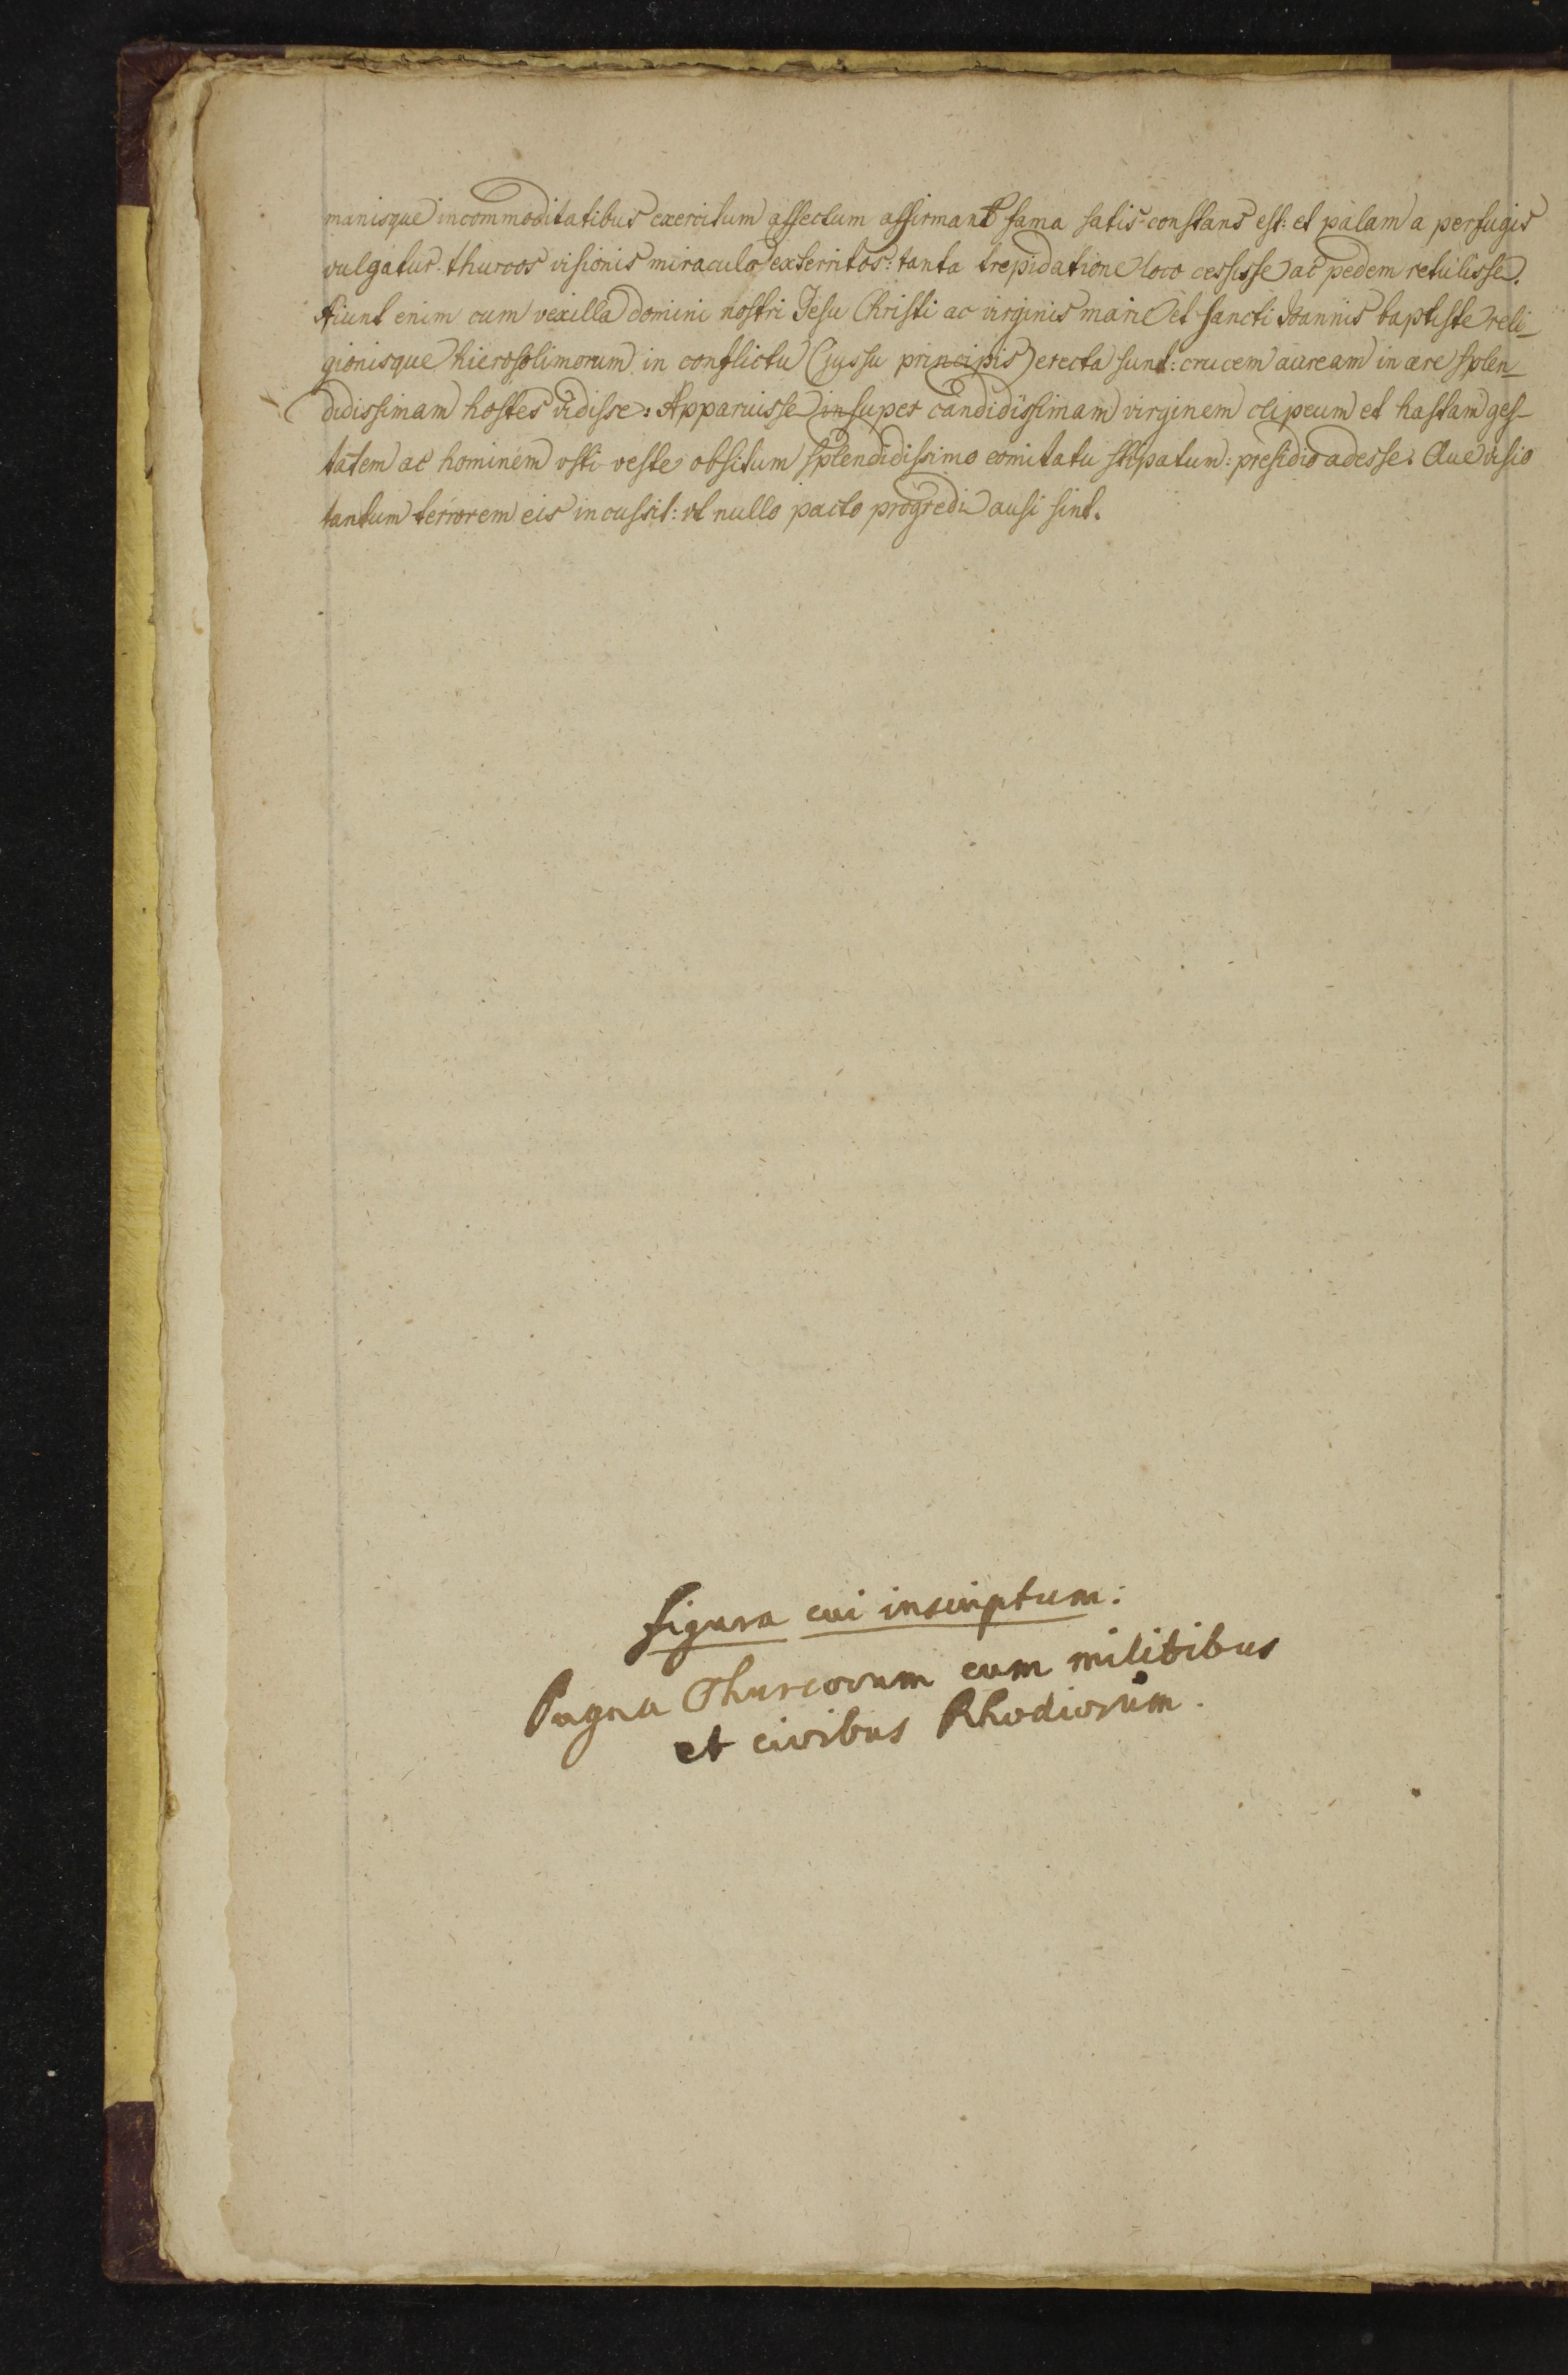 manisque incommoditatibus exercitum affectum affirmant fama satis constans est: et palam a perfugis
vulgatur. thurcos visionis miraculo exterritos: tanta trepidatione loco cessisse ac pedem retulisse.
Aiunt enim cum vexilla domini nostri Jesu Christi ac virginis marie et sancti Joannis baptiste reli_
gionisque hierosolimorum in conflictu (jussu principis) erecta sunt: crucem auream in ære splen_
didissimam hostes vidisse: Apparuisse insuper candidissimam virginem clipeum et hastam ges_
tatem ac hominem vsti veste obsitum splendidissimo comitatu stipatum: presidio adesse. Que visio
tantum terrorem eis incussit: vt nullo pacto progredi ausi sint.
figura cui inscriptum:
Pugna Thurcorum cum militibus
et civibus Rhodiorum.